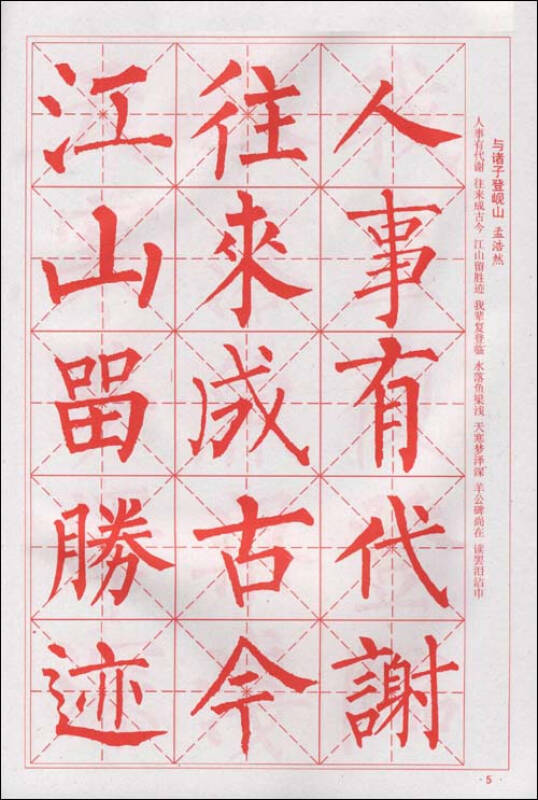 与诸子登岘山 孟浩然
人事有代谢 往来成古今 江山留胜迹 我辈复登临 水落鱼梁浅 天寒梦泽深 羊公碑尚在 读罢泪沾巾
人事有代謝
往來成古今
江山畱勝迹
·5·